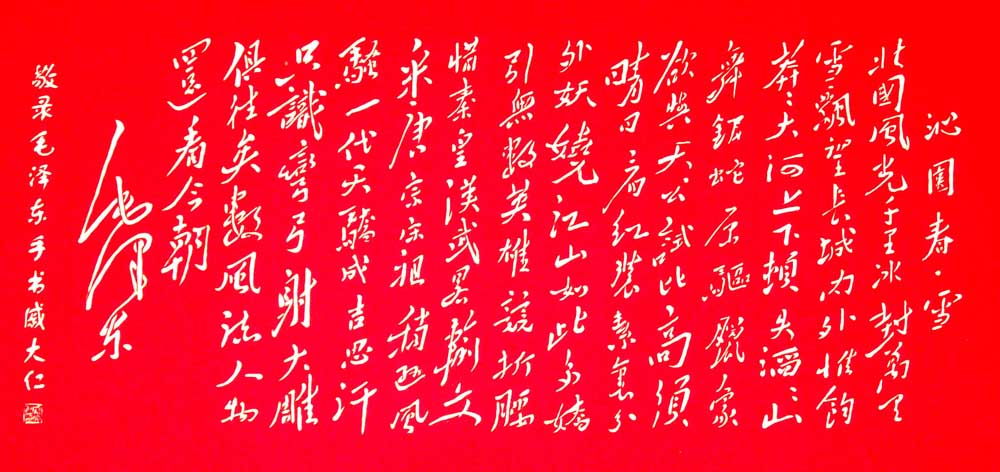 沁園春·雪
北國風光千里冰封萬里
雪飄望長城內外惟餘
莽々大河上下頓失滔々山
舞銀蛇原驅蠟象
欲與天公試比高須
晴日看紅裝素裹分
外妖嬈江山如此多嬌
引無數英雄競折腰
惜秦皇漢武畧輸文
采唐宗宋祖稍遜風
騷一代天驕成吉思汗
只識彎弓射大雕
俱往矣數風流人物
還看今朝
毛澤东
敬录毛泽东手书威大仁